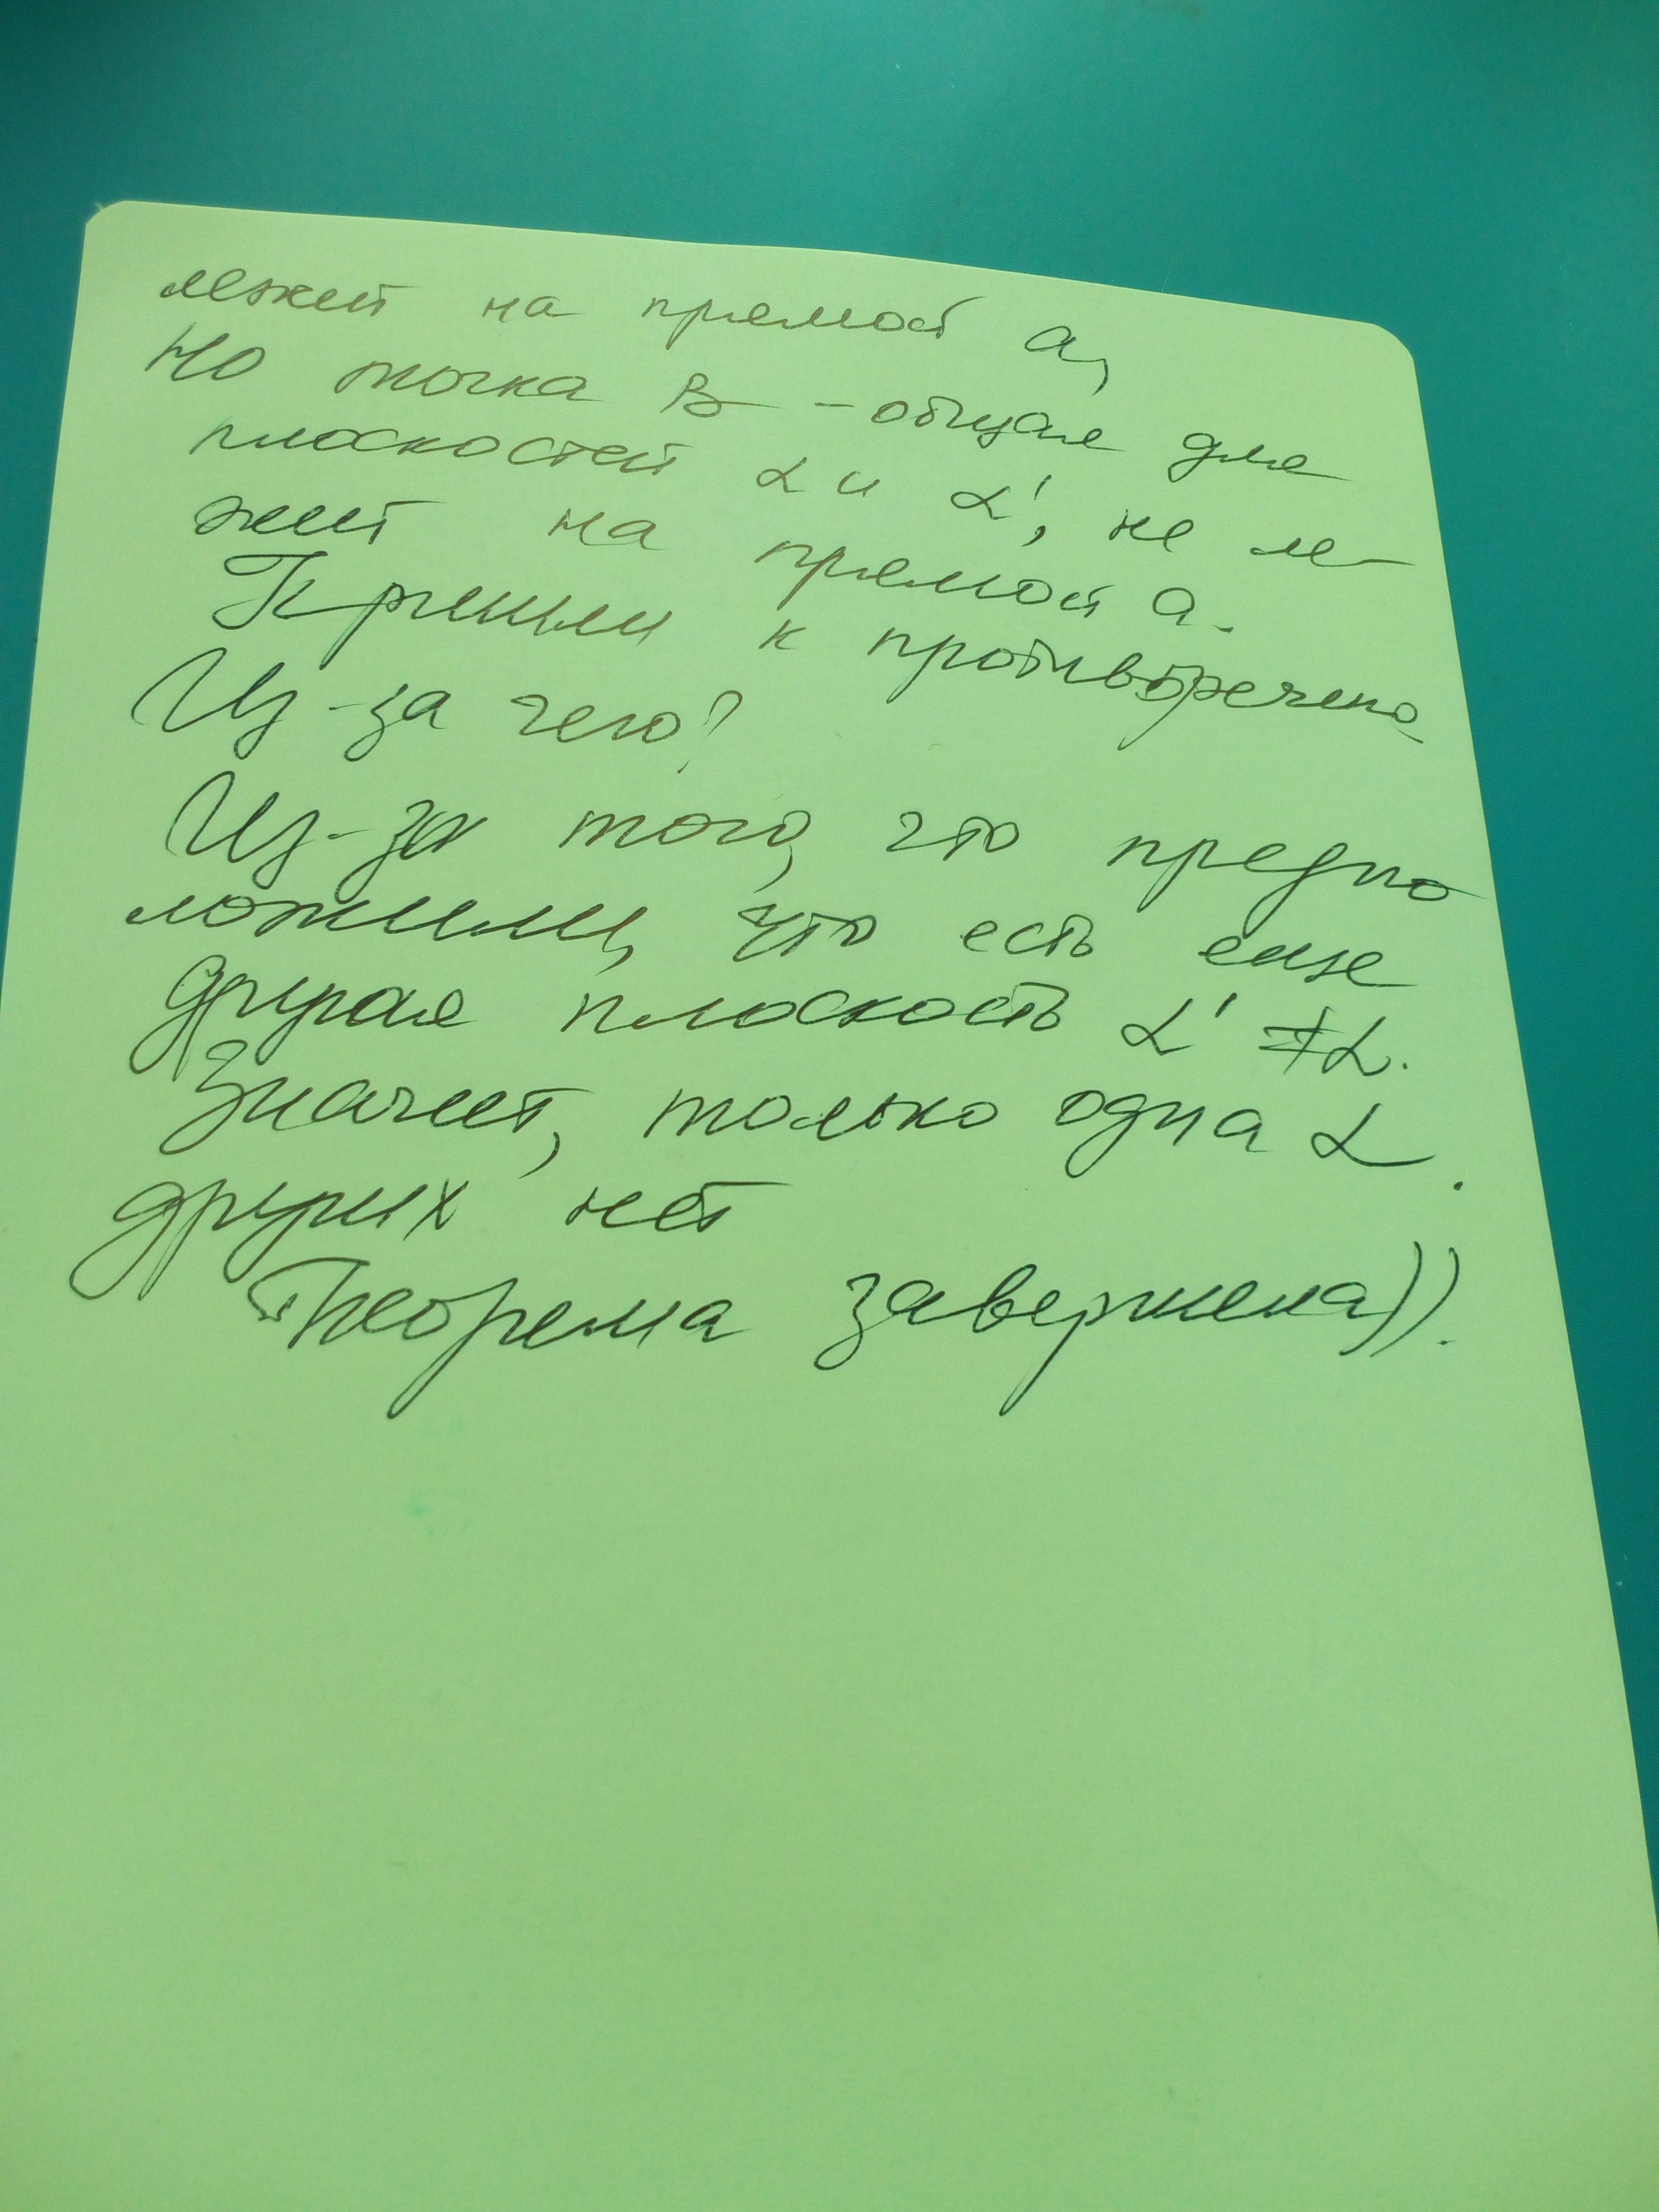 лежит на прямой a,
но точка B - общая для
плоскостей α и α', не ле-
жит на прямой a.
Пришли к противоречию
Из-за чего?
Из-за того, что предпо
ложили, что есть еще
другая плоскость α' ≠ α.
Значит, только одна α.
других нет
Теорема завершена)).